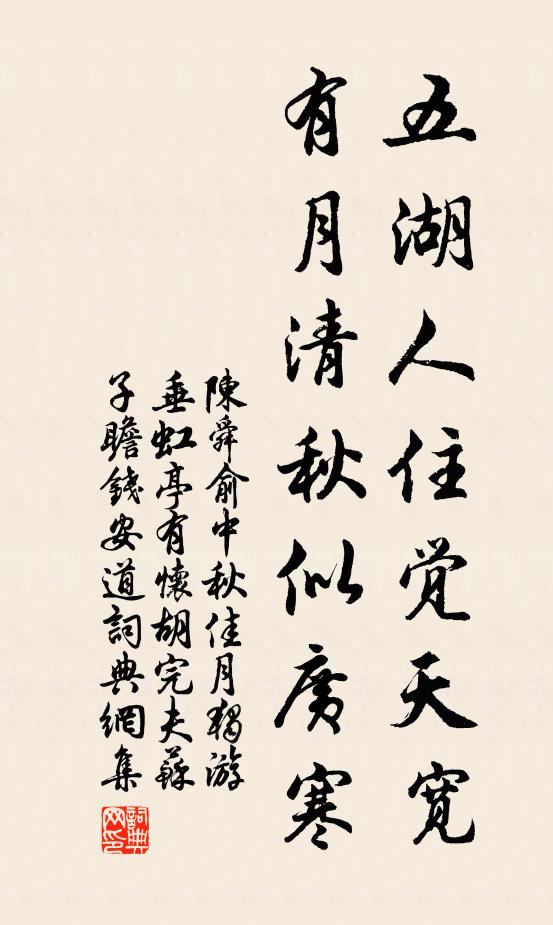 五湖人住觉天宽
有月清秋似廣寒
陳舜俞中秋佳月獨游
垂虹亭有懷胡完夫蘇
子瞻錢安道詞典網集
詞典网印